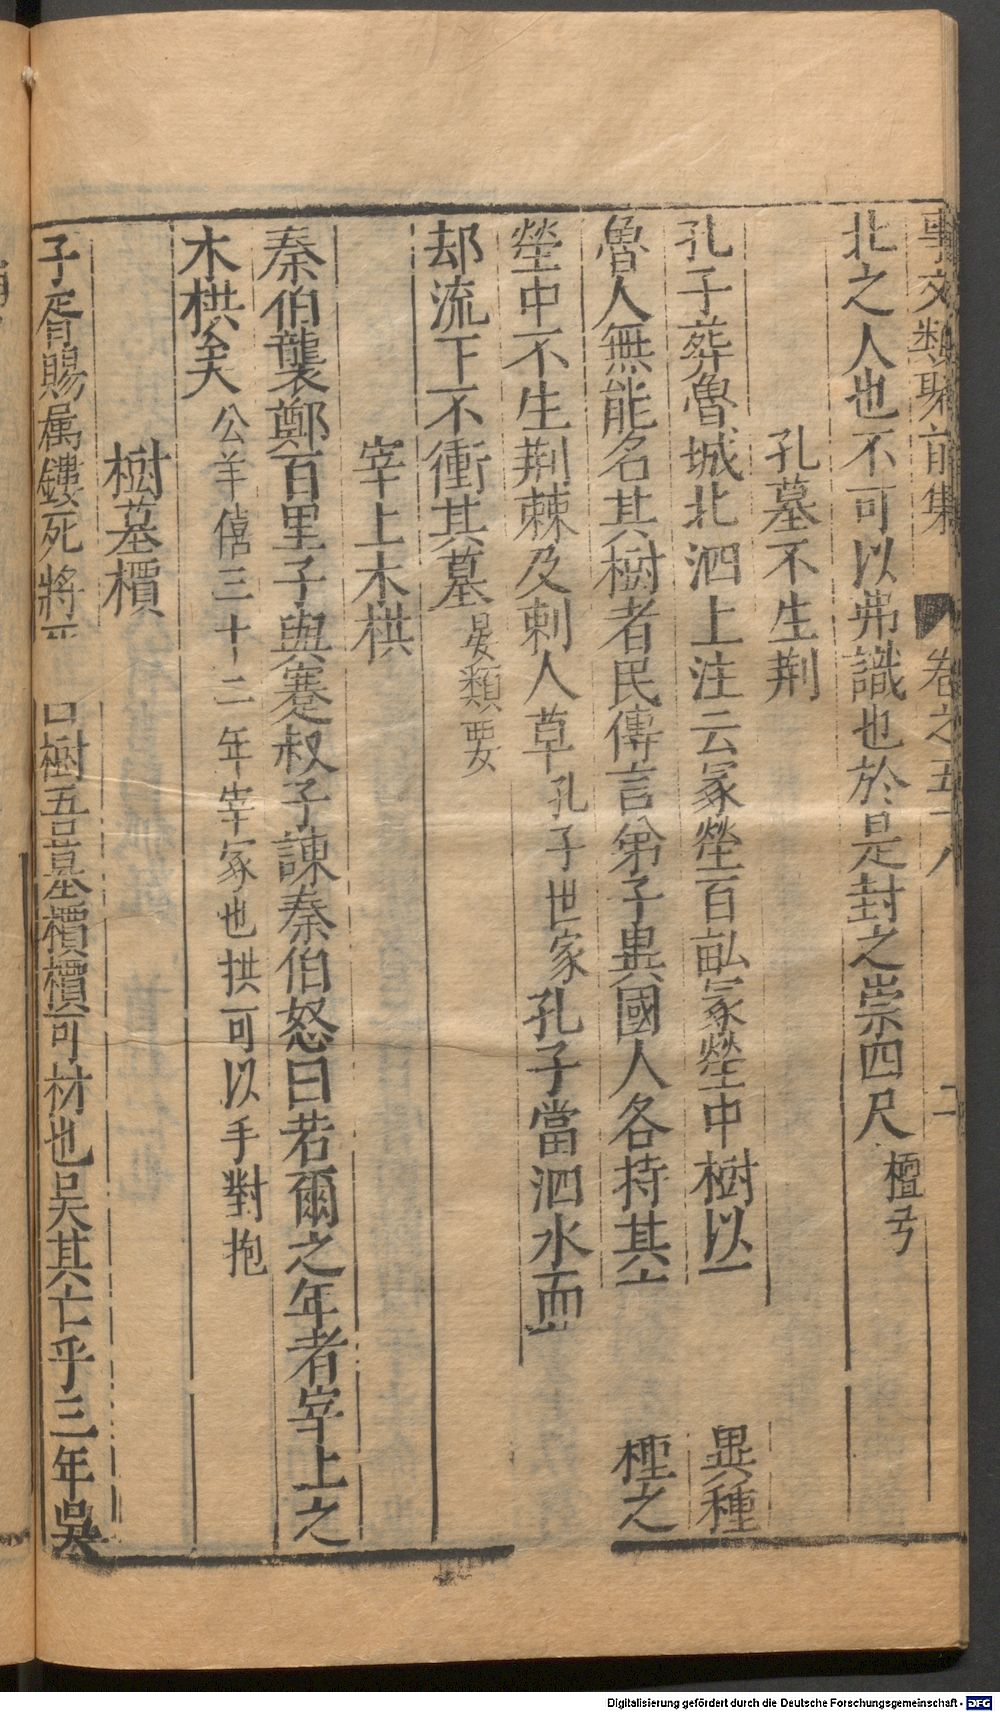 事文類聚前集 卷之五十八 二
北之人也不可以弗識也於是封之崇四尺檀弓
孔墓不生荆
孔子葬魯城北泗上注云冢塋百畝冢塋中樹以 異種
魯人無能名其樹者民傳言弟子異國人各持其 種之
塋中不生荆棘及刺人草孔子世家孔子當泗水而
却流下不衝其墓晏類要
宰上木栱
秦伯襲鄭百里子與蹇叔子諫秦伯怒曰若爾之年者宰上之
木栱矣公羊僖三十二年宰冢也拱可以手對抱
樹墓檟
子胥賜属鏤死將死 曰樹吾墓檟檟可材也吴其亡乎三年吳
Digitalisierung gefördert durch die Deutsche Forschungsgemeinschaft - DFG